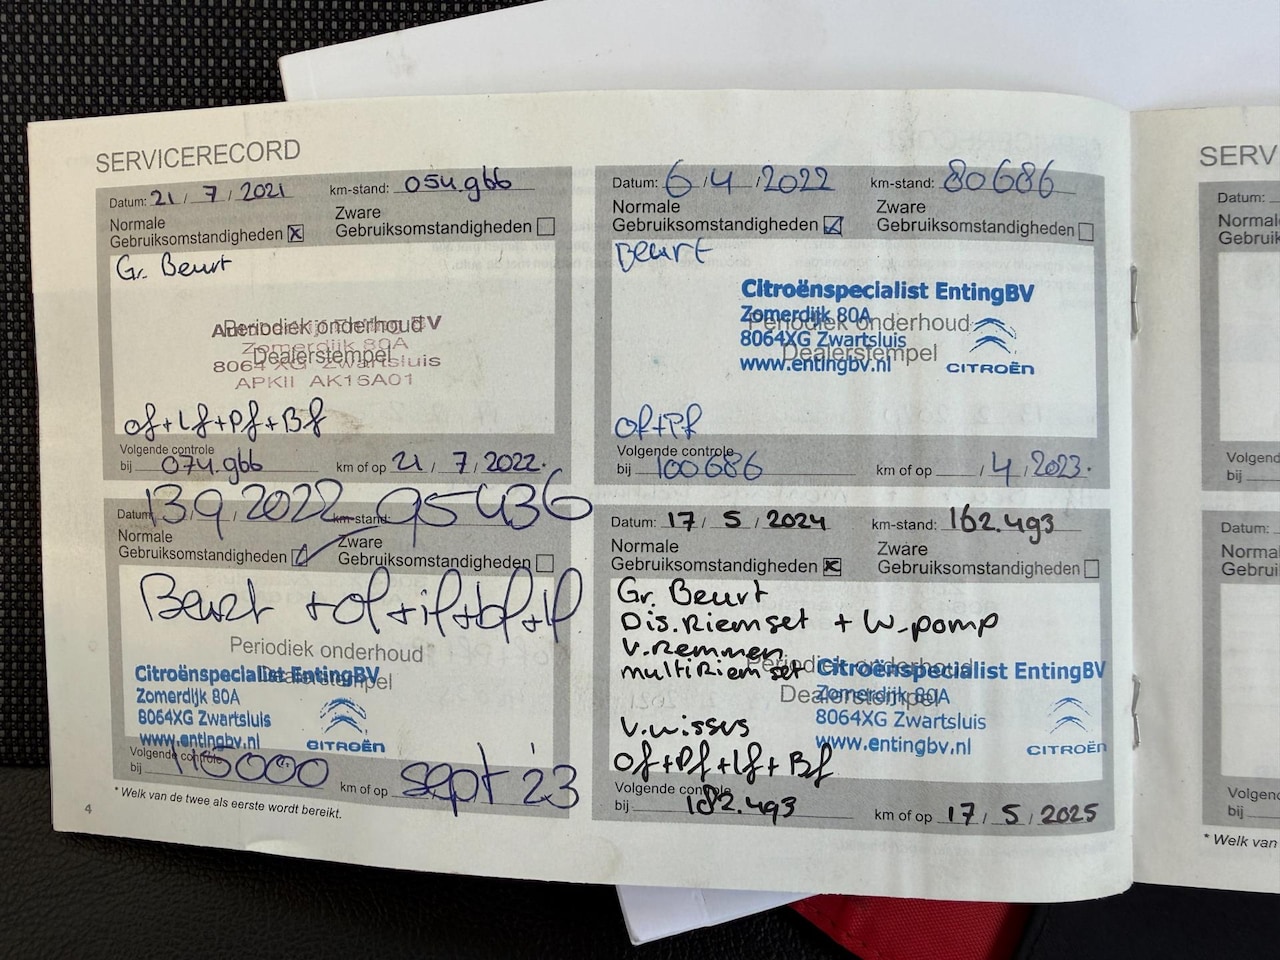 SERVICERECORD
Datum: 21 / 7 / 2021 km-stand: 054.966
Normale
Gebruiksomstandigheden
Zware
Gebruiksomstandigheden
Gr. Beurt
Periodiek onderhoud
Zomerdijk 80A
Dealerstempel
8064 XG Zwartsluis
APKII AK15A01
of+Lf+Pf+Bf
Volgende controle
bij 074.966 km of op 21 / 7 / 2022.
Datum: 6 / 4 / 2022 km-stand: 80686
Normale
Gebruiksomstandigheden
Zware
Gebruiksomstandigheden
Beurt
Citroënspecialist EntingBV
Zomerdijk 80A
Periodiek onderhoud
8064XG Zwartsluis
Dealerstempel
www.entingbv.nl
CITROËN
of+Pf
Volgende controle
bij 100686 km of op / 4 / 2023.
Datum: 13 / 9 / 2022 km-stand: 95436
Normale
Gebruiksomstandigheden
Zware
Gebruiksomstandigheden
Beurt +of+if+bf+lf
Periodiek onderhoud
Citroënspecialist EntingBV
Dealerstempel
Zomerdijk 80A
8064XG Zwartsluis
www.entingbv.nl
CITROËN
Volgende controle
bij 115000 km of op sept '23
* Welk van de twee als eerste wordt bereikt.
4
Datum: 17 / 5 / 2024 km-stand: 162.493
Normale
Gebruiksomstandigheden
Zware
Gebruiksomstandigheden
Gr. Beurt
Dis.Riemset + W-pomp
V.Remmen
multiRiem set
Periodiek onderhoud
Citroënspecialist EntingBV
Dealerstempel
Zomerdijk 80A
8064XG Zwartsluis
V.wissers
www.entingbv.nl
CITROËN
of+Pf+lf+Bf
Volgende controle
bij 182.493 km of op 17 / 5 / 2025
SERV
Datum:
Normal
Gebruik
Volgend
bij
Datum:
Norma
Gebrui
Volgen
bij
* Welk van